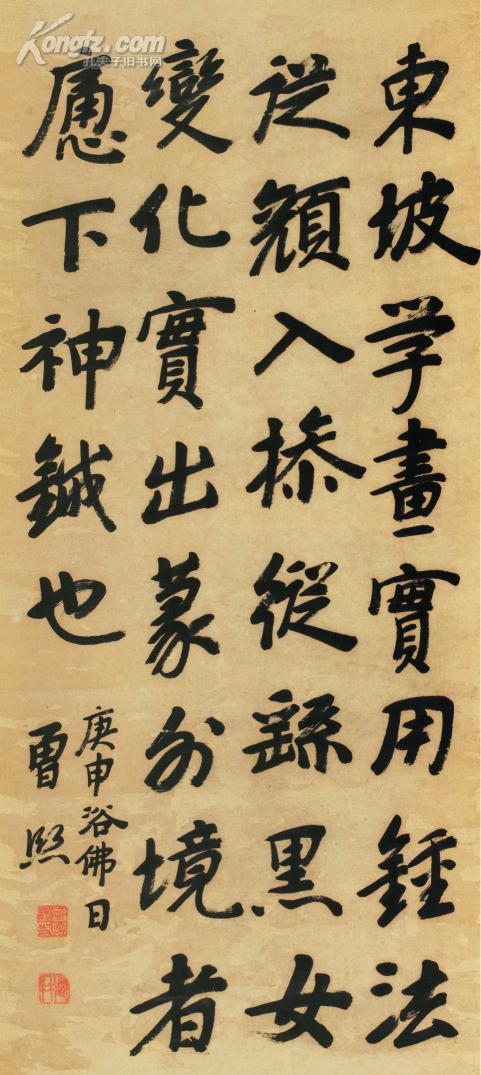 Kongfz.com
孔夫子旧书网
東坡学畫實用鍾法
從顏入操縱繇黑女
變化實出篆外境者
下神鍼也
庚申浴佛日
曾熙